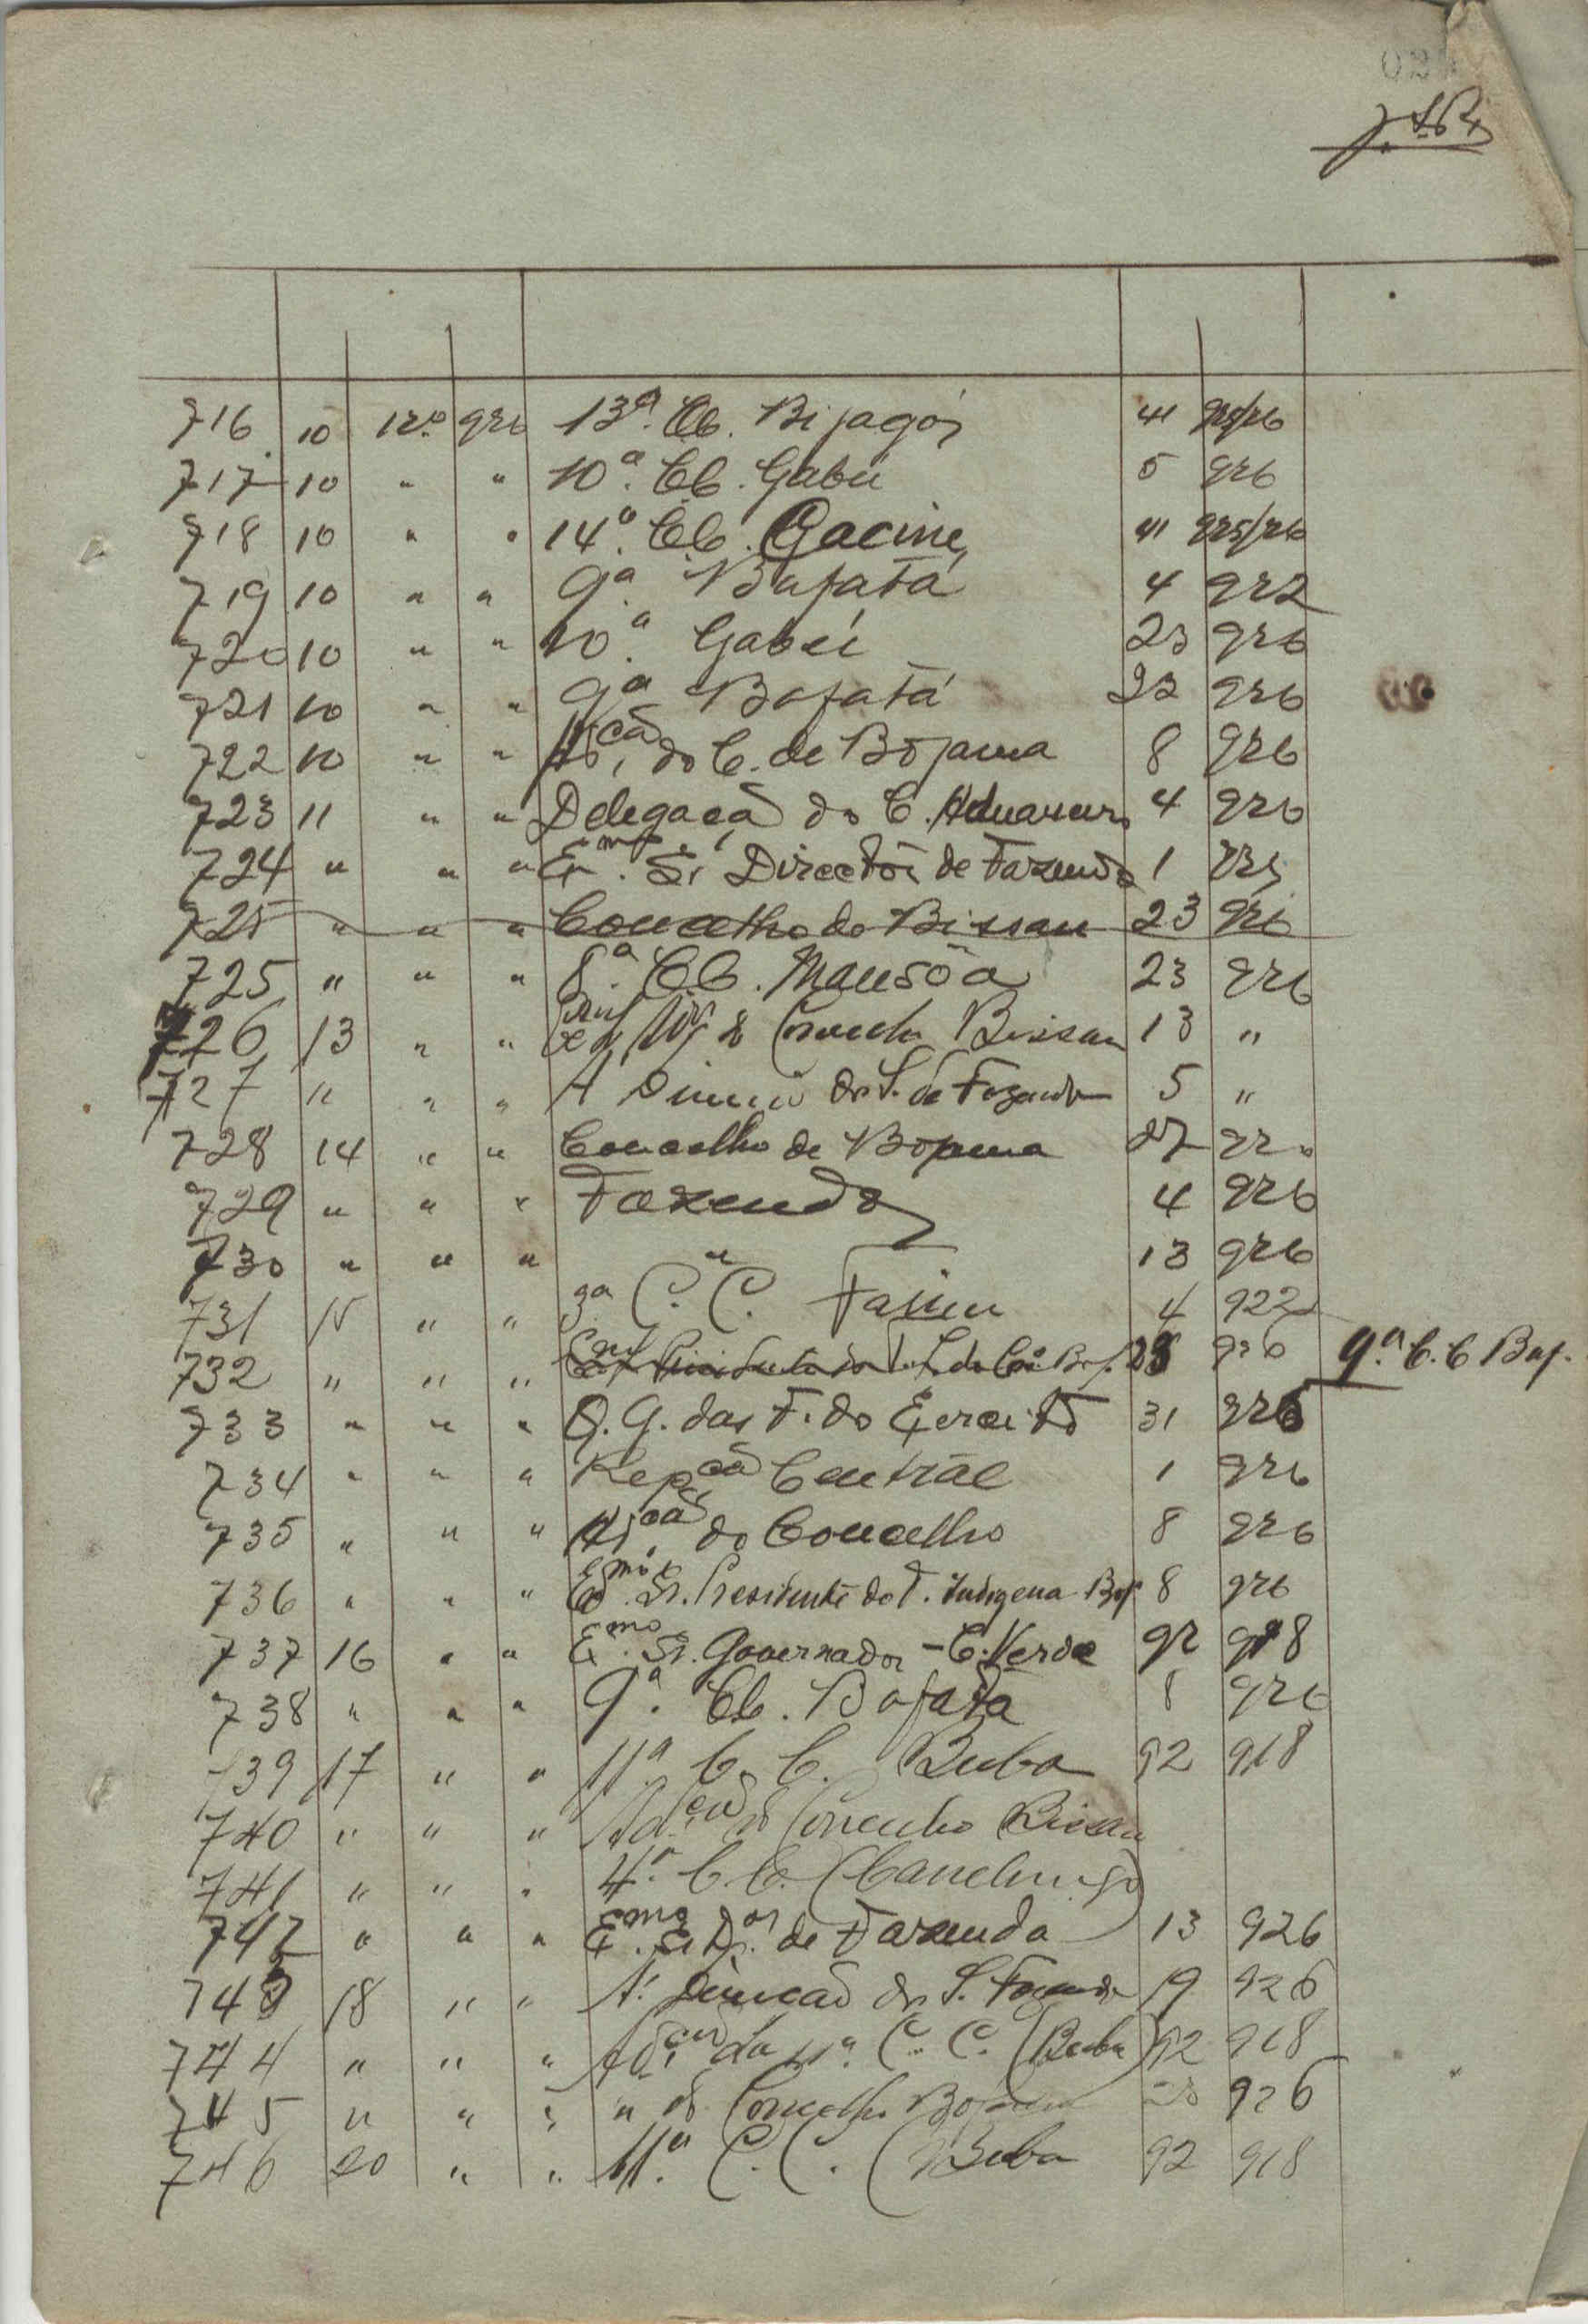 716 10 12º 926 13ª. CC. Bijagós 41 925/26
717 10 " " 10ª. CC. Gabú 5 926
718 10 " " 14ª. CC. Cacine 41 925/26
719 10 " " 9ª. Bafatá 4 922
720 10 " " 10ª. Gabú 23 926
721 10 " " 9ª Bafatá 22 926
722 10 " " do C. de Bolama 8 926
723 11 " " Delegaçã do C. Aduaneiro 4 926
724 " " " Exmo. Sr. Director de Fazenda 1
725 " " " Concelho de Bissau 23 926
725 " " " 8ª. CC. Mansôa 23 926
726 13 " " Concelho Bissau 13 "
727 " " " A Direcção dos S. de Fazenda 5 "
728 14 " " Concelho de Bolama 27
729 " " " Fazenda 4 926
730 " " " " 13 926
731 15 " " 3ª C. C. Farim 4 922
732 " " " 926 9.ª C. C Baf.
733 " " " Q. G. das F. do Exercito 31 926
734 " " " Repçã Central 1 926
735 " " " do Concelho 8 926
736 " " " Exmo. Sr. Presidente do T. Indigena Baf 8 926
737 16 " " Exmo. Sr. Governador - C. Verde 92 918
738 " " " 9ª. CC. Bafatá 8 926
739 17 " " 11ª C. C. Buba 92 918
740 " " " Concelho Bissau
741 " " " 4ª. C. C. (Canchungo)
742 " " " Exmo. Sr. Dor. de Fazenda 13 926
743 18 " " A Direcção dos S. Fazenda 19 926
744 " " " da 11ª. C. C. (Buba) 92 918
745 " " " " do Concelho Bolama 926
746 20 " " 11ª. C. C. (Buba 92 918